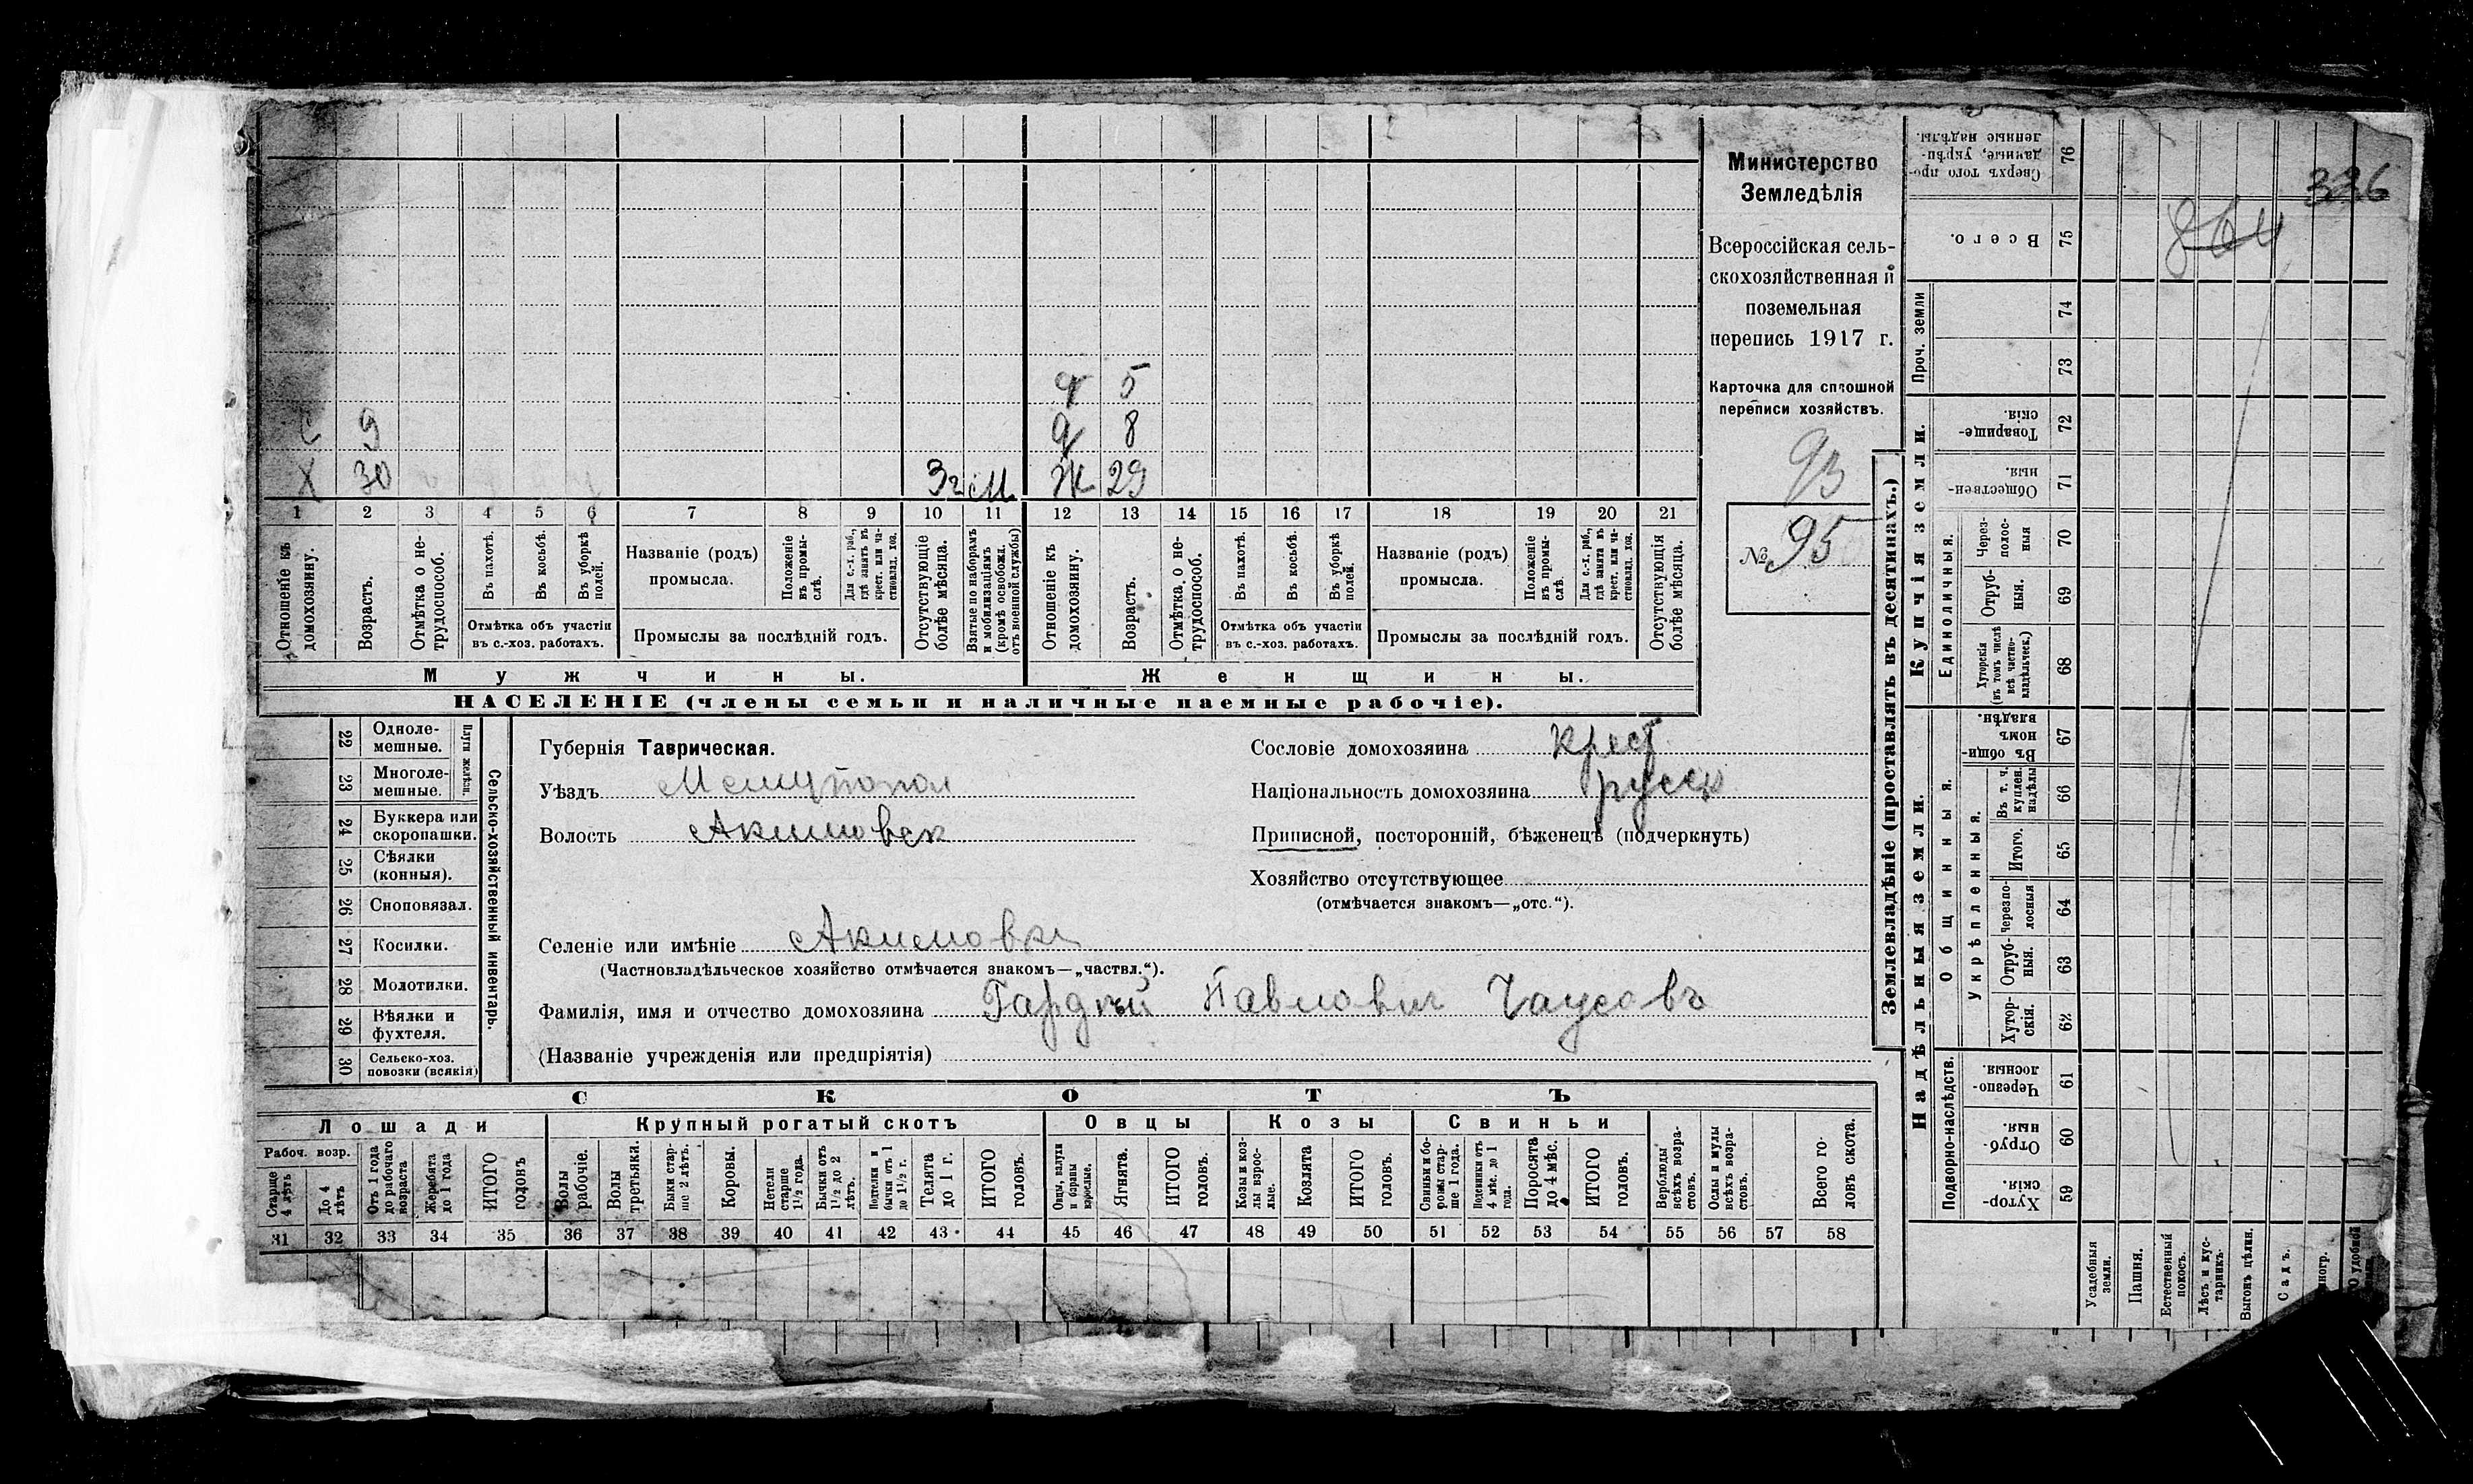 336
864
Министерство
Земледѣлія
Всероссійская сель-
скохозяйственная и
поземельная
перепись 1917 г.
Карточка для сплошной
переписи хозяйствъ.
93
№ 95
д 5
с 9 д 8
х 30 3 г. М Ж 29
1 2 3 4 5 6 7 8 9 10 11 12 13 14 15 16 17 18 19 20 21
Отношеніе къ домохозяину.
Возрастъ.
Отмѣтка о не-трудоспособ.
Въ пахотѣ.
Въ косьбѣ.
Въ уборкѣ полей.
Отмѣтка объ участіи
въ с.-хоз. работахъ.
Названіе (родъ)
промысла.
Положеніе въ промы-слѣ.
Для с.-х. раб., гдѣ занятъ въ крест. или ча-стновлад. хоз.
Промыслы за послѣдній годъ.
Отсутствующіе болѣе мѣсяца.
Взятые по наборамъ и мобилизаціямъ (кромѣ освобожд. отъ военной службы)
Отношеніе къ домохозяину.
Возрастъ.
Отмѣтка о не-трудоспособ.
Въ пахотѣ.
Въ косьбѣ.
Въ уборкѣ полей.
Отмѣтка объ участіи
въ с.-хоз. работахъ.
Названіе (родъ)
промысла.
Положеніе въ промы-слѣ.
Для с.-х. раб., гдѣ занята въ крест. или ча-стновлад. хоз.
Промыслы за послѣдній годъ.
Отсутствующія болѣе мѣсяца.
Мужчины. Женщины.
НАСЕЛЕНІЕ (члены семьи и наличные наемные рабочіе).
22 Одноле-мешные.
23 Многоле-мешные.
Плуги желѣзн.
24 Буккера или скоропашки.
25 Сѣялки (конныя).
26 Сноповязал.
27 Косилки.
28 Молотилки.
29 Вѣялки и фухтеля.
30 Сельско-хоз. повозки (всякія)
Сельско-хозяйственный инвентарь.
Губернія Таврическая.
Уѣздъ Мелитопол
Волость Акимовск
Сословіе домохозяина крест
Національность домохозяина русск
Приписной, посторонній, бѣженецъ (подчеркнуть)
Хозяйство отсутствующее
(отмѣчается знакомъ—„отс.“).
Селеніе или имѣніе Акимовка
(Частновладѣльческое хозяйство отмѣчается знакомъ—„частвл.“).
Фамилія, имя и отчество домохозяина Гордѣй Павлович Чаусовъ
(Названіе учрежденія или предпріятія)
СКОТЪ
Лошади Крупный рогатый скотъ Овцы Козы Свиньи
Рабоч. возр.
Старше 4 лѣтъ
До 4 лѣтъ
Отъ 1 года до рабочаго возраста
Жеребята до 1 года
ИТОГО головъ
Волы рабочіе.
Волы третьяки.
Быки стар-ше 2 лѣтъ.
Коровы.
Нетели старше 1½ года.
Бычки отъ 1½ до 2 лѣтъ.
Подтелки и бычки отъ 1 до 1½ г.
Телята до 1 г.
ИТОГО головъ.
Овцы, валухи и бараны взрослые.
Ягнята.
ИТОГО головъ.
Козы и коз-лы взрос-лые.
Козлята
ИТОГО головъ.
Свиньи и бо-ровы стар-ше 1 года.
Подсвинки отъ 4 мѣс. до 1 года.
Поросята до 4 мѣс.
ИТОГО головъ.
Верблюды всѣхъ возра-стовъ.
Ослы и мулы всѣхъ возра-стовъ.
Всего го-ловъ скота.
31 32 33 34 35 36 37 38 39 40 41 42 43 44 45 46 47 48 49 50 51 52 53 54 55 56 57 58
Землевладѣніе (проставлять въ десятинахъ.)
Сверхъ того про-данные, укрѣп-ленные надѣлы. 76
Всего. 75
Проч. земли
74
73
Купчія земли.
Товарище-скія. 72
Обществен-ныя. 71
Единоличныя.
Через-полос-ныя 70
Отруб-ныя. 69
Хуторскія (въ томъ числѣ всѣ частно-владѣльческ.) 68
Надѣльныя земли.
Общинныя.
Въ общин-номъ владѣн. 67
Укрѣпленныя.
Въ т. ч. куплен. надѣлы 66
Итого. 65
черезпо-лосныя 64
Отруб-ныя. 63
Хутор-скія. 62
Подворно-наслѣдств.
Черезпо-лосныя. 61
Отруб-ныя. 60
Хутор-скія. 59
Усадебныя земли.
Пашня.
Естественный покосъ.
Лѣсъ и кус-тарникъ.
Выгонъ цѣлин.
Садъ.